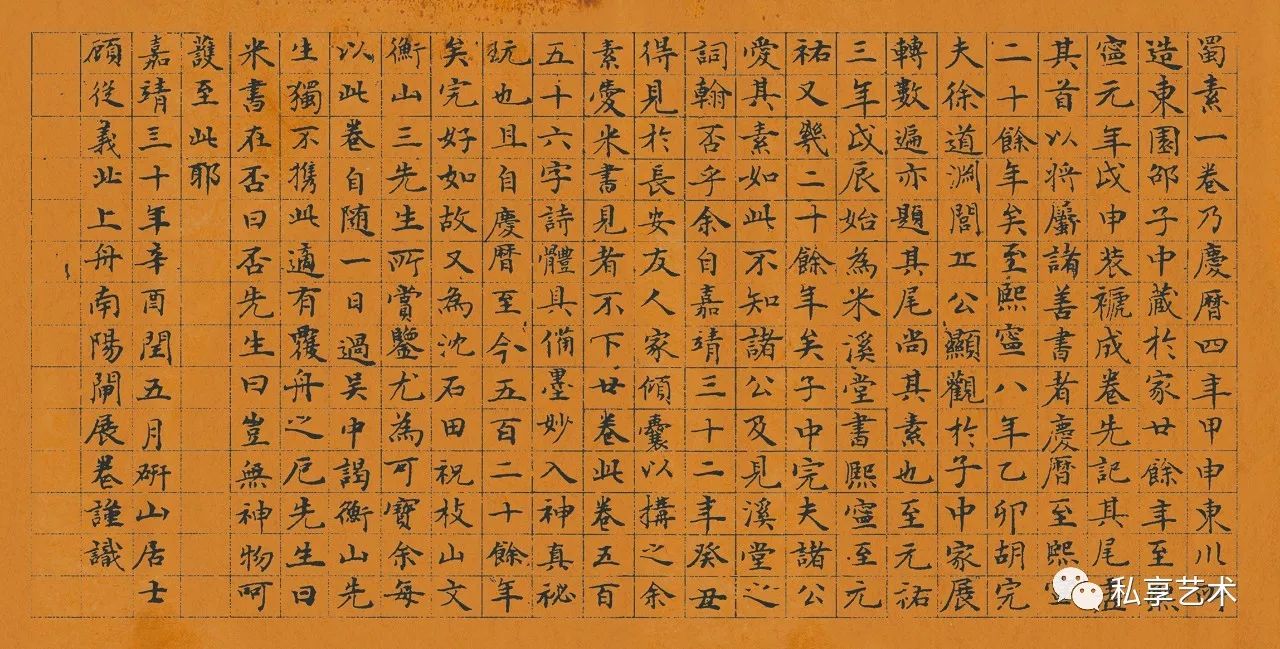 蜀素一卷乃慶曆四年甲申東川所
造東園邵子中藏於家廿餘年至熙
寧元年戊申装褫成卷先記其尾
其首以將屬諸善書者慶曆至熙寧
二十餘年矣至熙寧八年乙卯胡完
夫徐道淵閭丘公顯觀於子中家展
轉數遍亦題其尾尚其素也至元祐
三年戊辰始為米溪堂書熙寧至元
祐又幾二十餘年矣子中完夫諸公
愛其素如此不知諸公及見溪堂之
詞翰否乎余自嘉靖三十二年癸丑
得見於長安友人家傾囊以搆之余
素愛米書見者不下廿卷此卷五百
五十六字詩體具俻墨妙入神真秘
玩也且自慶曆至今五百二十餘年
矣完好如故又為沈石田祝枝山文
衡山三先生所賞鑒尤為可寶余每
以此卷自随一日過吴中謁衡山先
生獨不携此適有覆舟之厄先生曰
米書在否曰否先生曰豈無神物呵
護至此耶
嘉靖三十年辛酉閏五月硏山居士
顧從義北上舟南陽閘展卷謹識
私享艺术